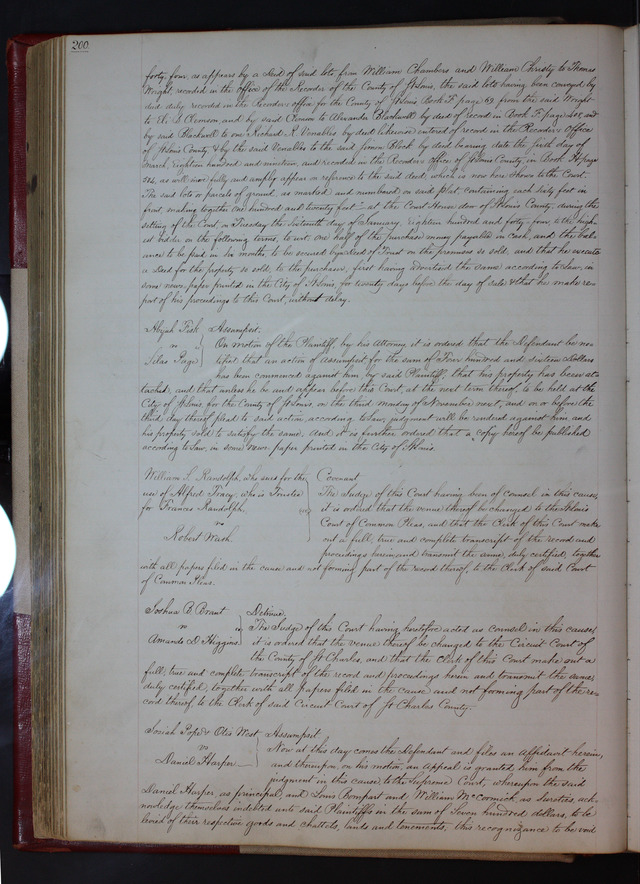 200
forty four, as appears by a deed of said lots from William Chambers and William Christy to Thomas
Wright, recorded in the office of the Recorder of the County of St Louis, the said lots having been conveyed by
deed duly recorded in the Recorders office for the County of St Louis Book F. page 69 from the said Wright
to Eli B Clemson and by said Clemson to Alexander Blackwell by deed of record in Book F. page and
by said Blackwell to one Richard R. Venables by deed likewise entered of record in the Recorders Office
of St Louis County & by the said Venables to the said Simon Block by deed bearing date the first day of
March, Eighteen hundred and nineteen, and recorded in the Recorders office of St Louis County, in Book H page
512, as will more fully and amply appear on reference to the said deed which is now here shown to the Court.
The said lots or parcels of ground, as marked and numbered on said plat, containing each sixty feet in
front, making together one hundred and twenty feet - at the Court House door of St Louis County, during the
sitting of the Court, on Tuesday the Sixteenth day of January, Eighteen hundred and forty-four, to the high-
est bidder on the following terms, to wit, one half of the purchase money payable in cash, and the bal-
ance to be paid in six months to be secured by deed of Trust on the premises so sold, and that he execute
a deed for the property so sold, to the purchaser, first having advertised the same according to law, in
some news paper printed in the City of St Louis, for twenty days before the day of sale & that he make re-
port of his proceedings to this Court, without delay.
Abijah Fisk } Assumpsit.
vs } On motion of the Plaintiff by his Attorney it is ordered that the Defendant be no-
Silas Page } tified that an action of assumpsit for the sum of Four hundred and sixteen Dollars
has been commenced against him, by said Plaintiff, that his property has been at-
tached, and that unless he be and appear before this Court, at the next term thereof, to be held at the
City of St Louis, for the County of St Louis, on the third Monday of November next, and on or before the
third day thereof plead to said action, according to law, judgment will be rendered against him and
his property sold to satisfy the same. And it is further ordered that a copy hereof be published
according to law, in some news-paper printed in the City of St Louis.
William S. Randolph, who sues for the } Covenant
use of Alfred Tracy, who is Trustee } The Judge of this Court having been of counsel in this cause,
for Frances Randolph, } it is ordered that the venue thereof be changed to the St Louis
vs } Court of Common Pleas, and that the Clerk of this Court make
Robert Wash. } out a full, true and complete transcript of the record and
proceedings herein, and transmit the same, duly certified, together
with all papers filed in the cause and not forming part of the record thereof, to the Clerk of said Court
of Common Pleas.
Joshua B Brant } Detinue,
vs } The Judge of this Court having heretofore acted as counsel in this cause,
Amanda D. Higgins } it is ordered that the venue thereof be changed to the Circuit Court of
the County of St Charles, and that the Clerk of this Court make out a
full, true and complete transcript of the record and proceedings herein and transmit the same,
duly certified, together with all papers filed in the cause and not forming part of the re-
cord thereof, to the Clerk of said Circuit Court of St Charles County.
Josiah Pope & Otis West } Assumpsit
vs } Now at this day comes the Defendant and files an Affidavit herein,
Daniel Harper } and thereupon, on his motion, an appeal is granted him from the
judgment in this cause, to the Supreme Court, whereupon the said
Daniel Harper, as principal, and Louis Bompart and William McCormick as Sureties, ack-
nowledge themselves indebted unto said Plaintiffs in the sum of Seven hundred dollars, to be
levied of their respective goods and chattels, lands and tenements, this recognizance to be void